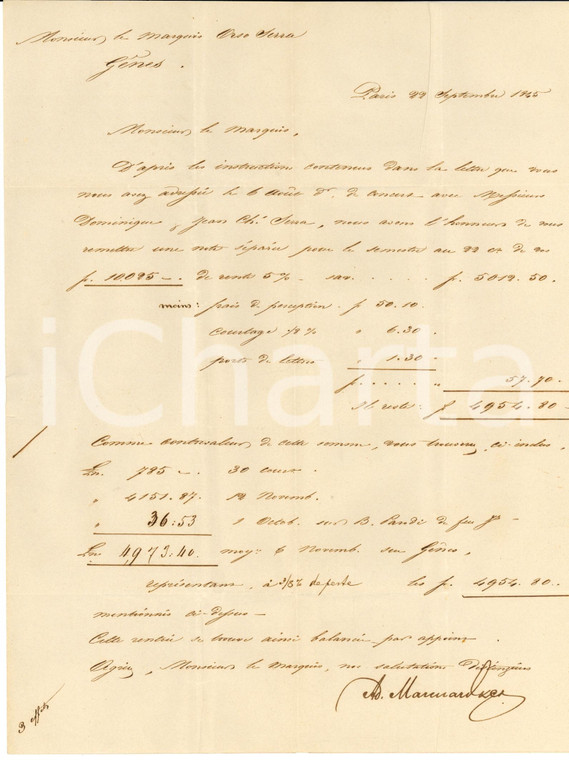 Monsieur le marquis Orso Serra
Gênes.
Paris 22 Septembre 1855
Monsieur le marquis,
D'après les instructions contenues dans la lettre que vous
nous avez adressée le 6 Août dr. de concert avec Messieurs
Dominique & Jean Chs. Serra, nous avons l'honneur de vous
remettre une note séparée pour le semestre au 22 ct de vos
f. 10,025 -. de rente 5% - sav. . . . . f. 5012.50.
moins: frais de perception f 50.10.
courtage 1/8 % " 6.30.
ports de lettres " 1.30 -
f. . . . . . " 57.70.
Il reste: f 4954.80 -
Comme contrevaleur de cette somme, vous trouverez, ci-inclus,
Ln. 785 -. 30 cour.
" 4151.87. 12 Novemb.
" 36:53 1 Octob. sur B. Parodi de feu
Ln 4,973.40. moy. 6 Novemb. sur Gênes,
représentant, à 3/8% de perte les f. 4954.80.
mentionnés ci-dessus -
Cette remise se trouve ainsi balancée par appoint.
Agréez, Monsieur le Marquis, nos salutations distinguées
Ad. Marcuard & Co.
3 effets
iCharta